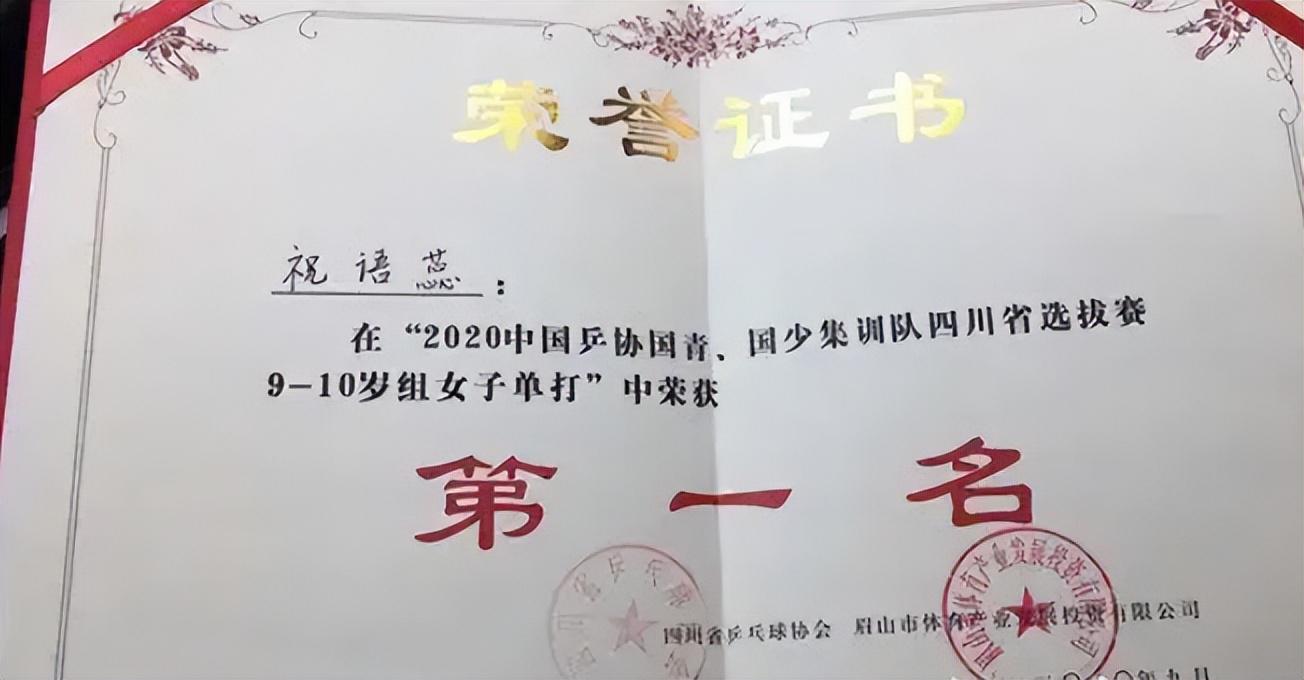 荣誉证书
祝语蕊：
在“2020中国乒协国青、国少集训队四川省选拔赛
9-10岁组女子单打”中荣获
第一名
四川省乒乓球协会 眉山市体育产业发展投资有限公司
年九月